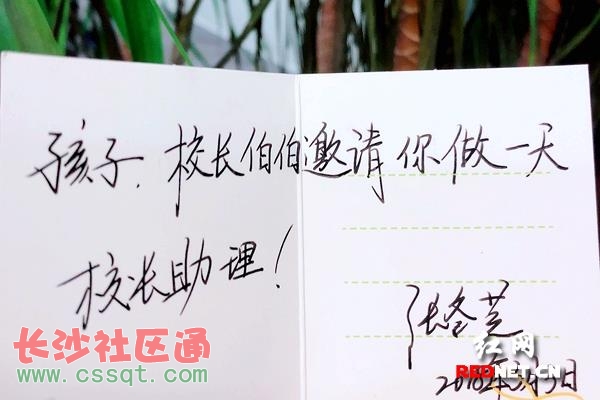 孩子,校长伯伯邀请你做一天
校长助理!
张冬芝
2018年3月3日
长沙社区通
www.cssqt.com
红网
REDNET.CN